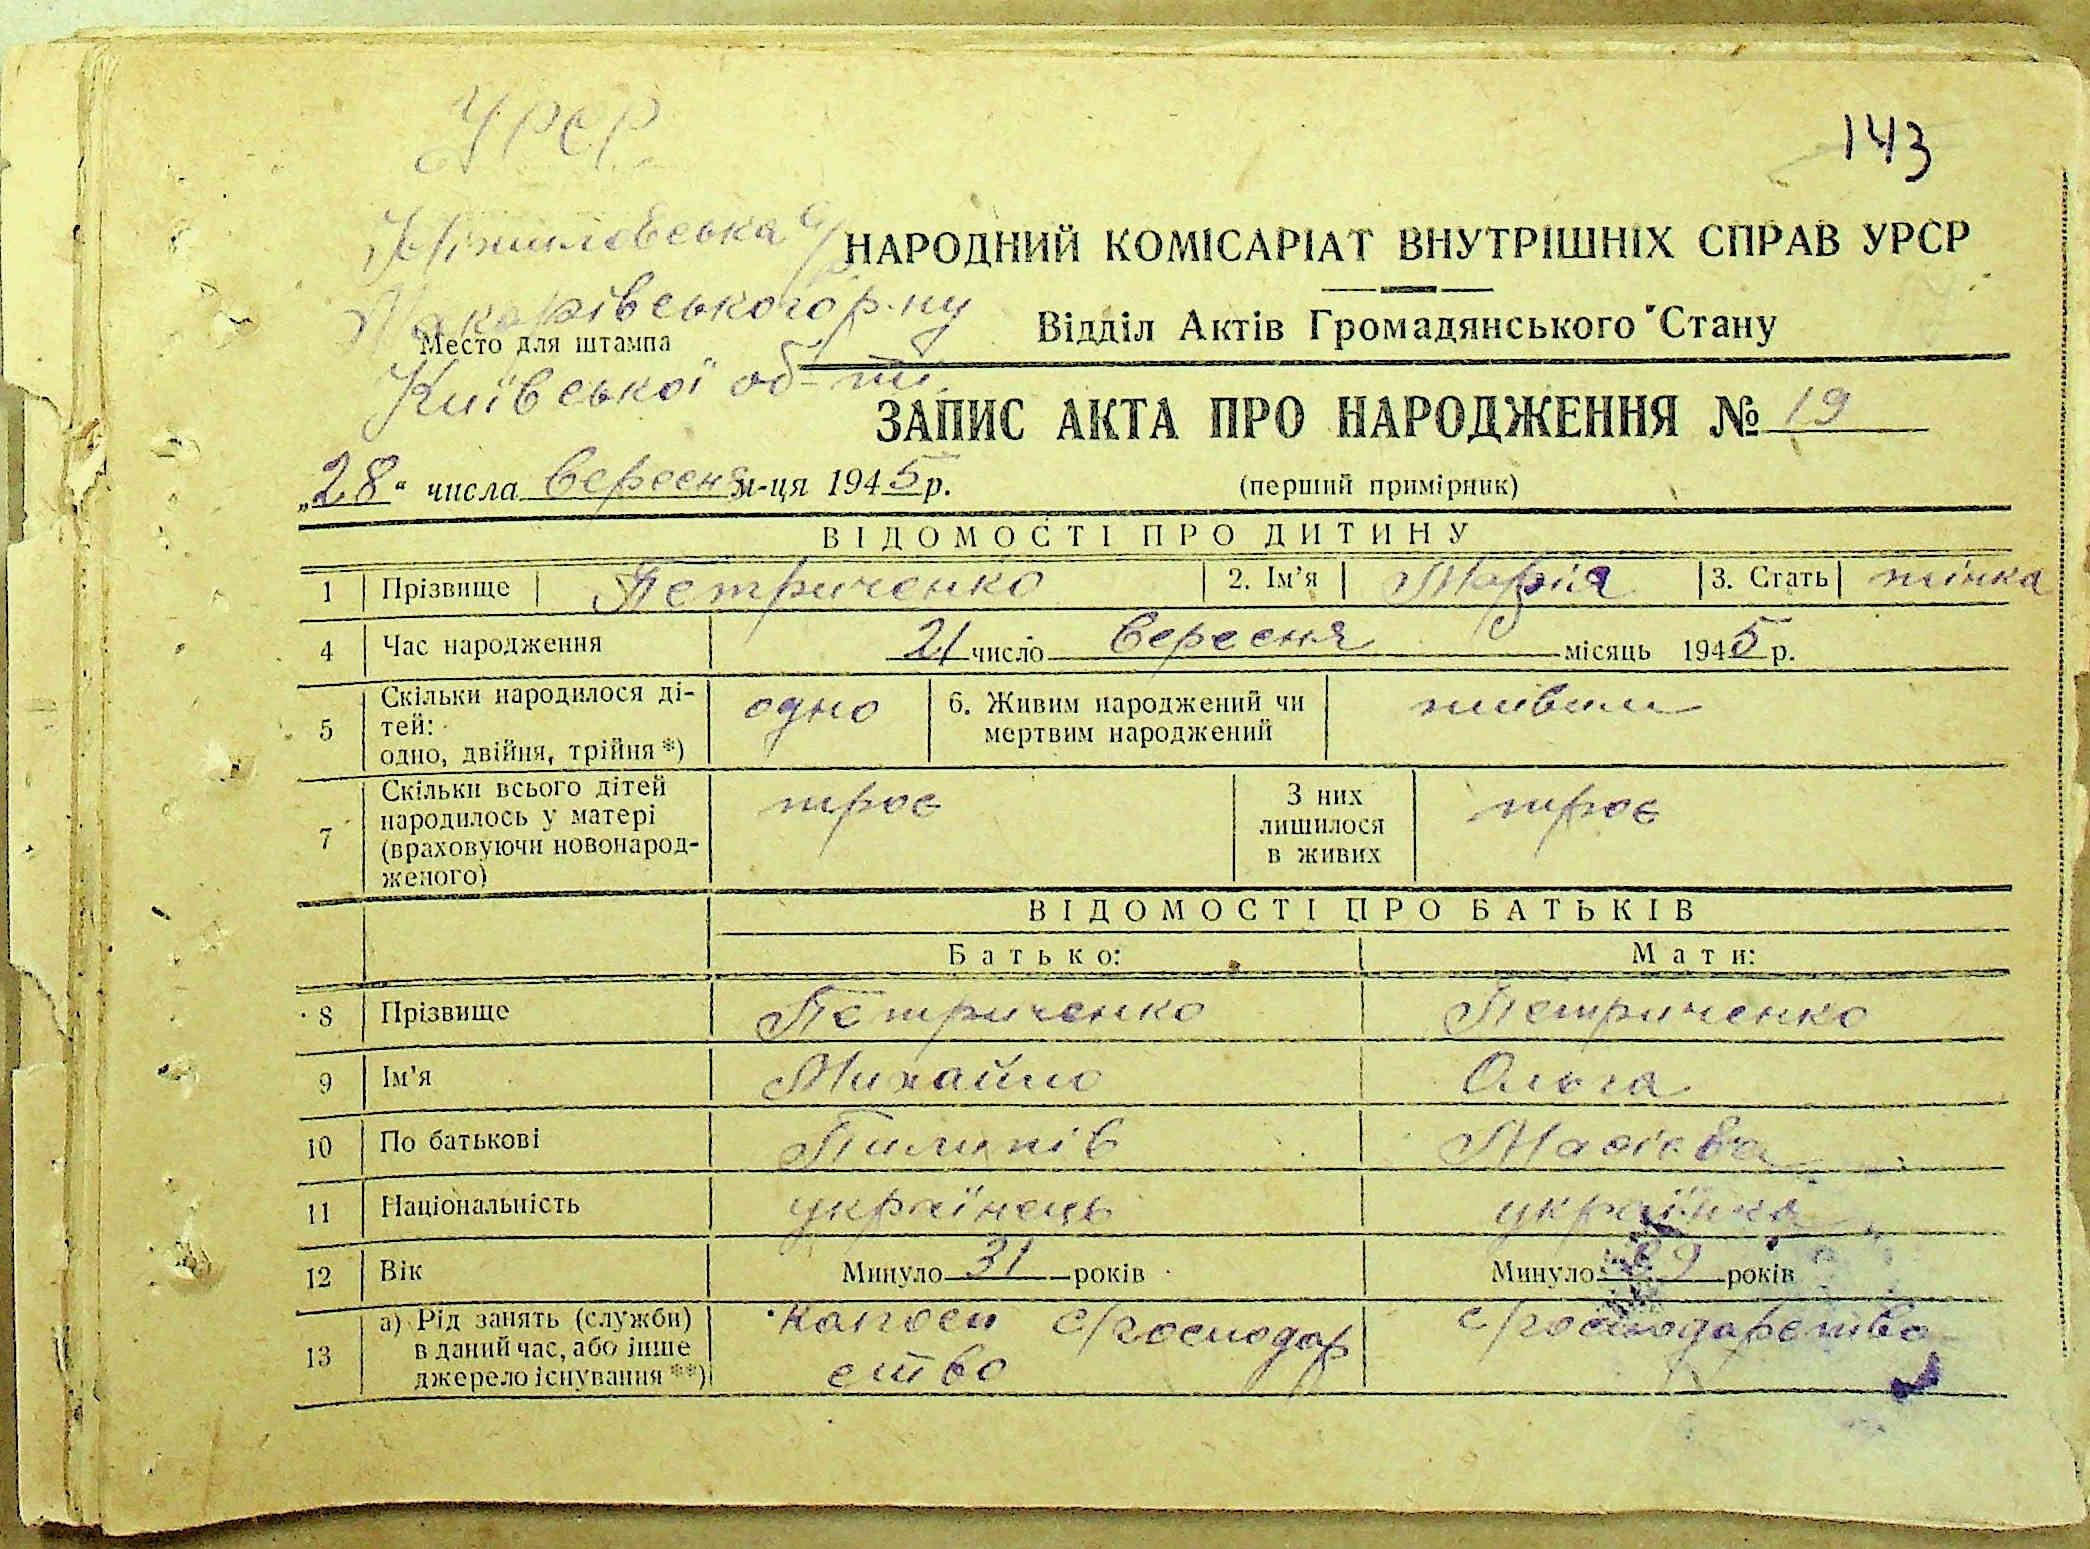 УРСР
143
НАРОДНИЙ КОМІСАРІАТ ВНУТРІШНІХ СПРАВ УРСР
Макарівського р-ну
Место для штампа
Відділ Актів Громадянського Стану
Київської об-ті
ЗАПИС АКТА ПРО НАРОДЖЕННЯ № 19
„28“ числа вересня м-ця 1945 р.
(перший примірник)
ВІДОМОСТІ ПРО ДИТИНУ
1 Прізвище Петриченко 2. Ім’я Марія 3. Стать жінка
4 Час народження 21 число вересня місяць 1945 р.
5 Скільки народилося ді-
тей:
одно, двійня, трійня *)
одно
6. Живим народжений чи
мертвим народжений
живим
7 Скільки всього дітей
народилось у матері
(враховуючи новонарод-
женого)
троє
З них
лишилося
в живих
троє
ВІДОМОСТІ ПРО БАТЬКІВ
Батько: Мати:
8 Прізвище Петриченко Петриченко
9 Ім’я Михайло Ольга
10 По батькові Пилипів
11 Національність українець українка
12 Вік Минуло 31 років Минуло років
13 а) Рід занять (служби)
в даний час, або інше
джерело існування **)
с/господар
ство
с/господарство